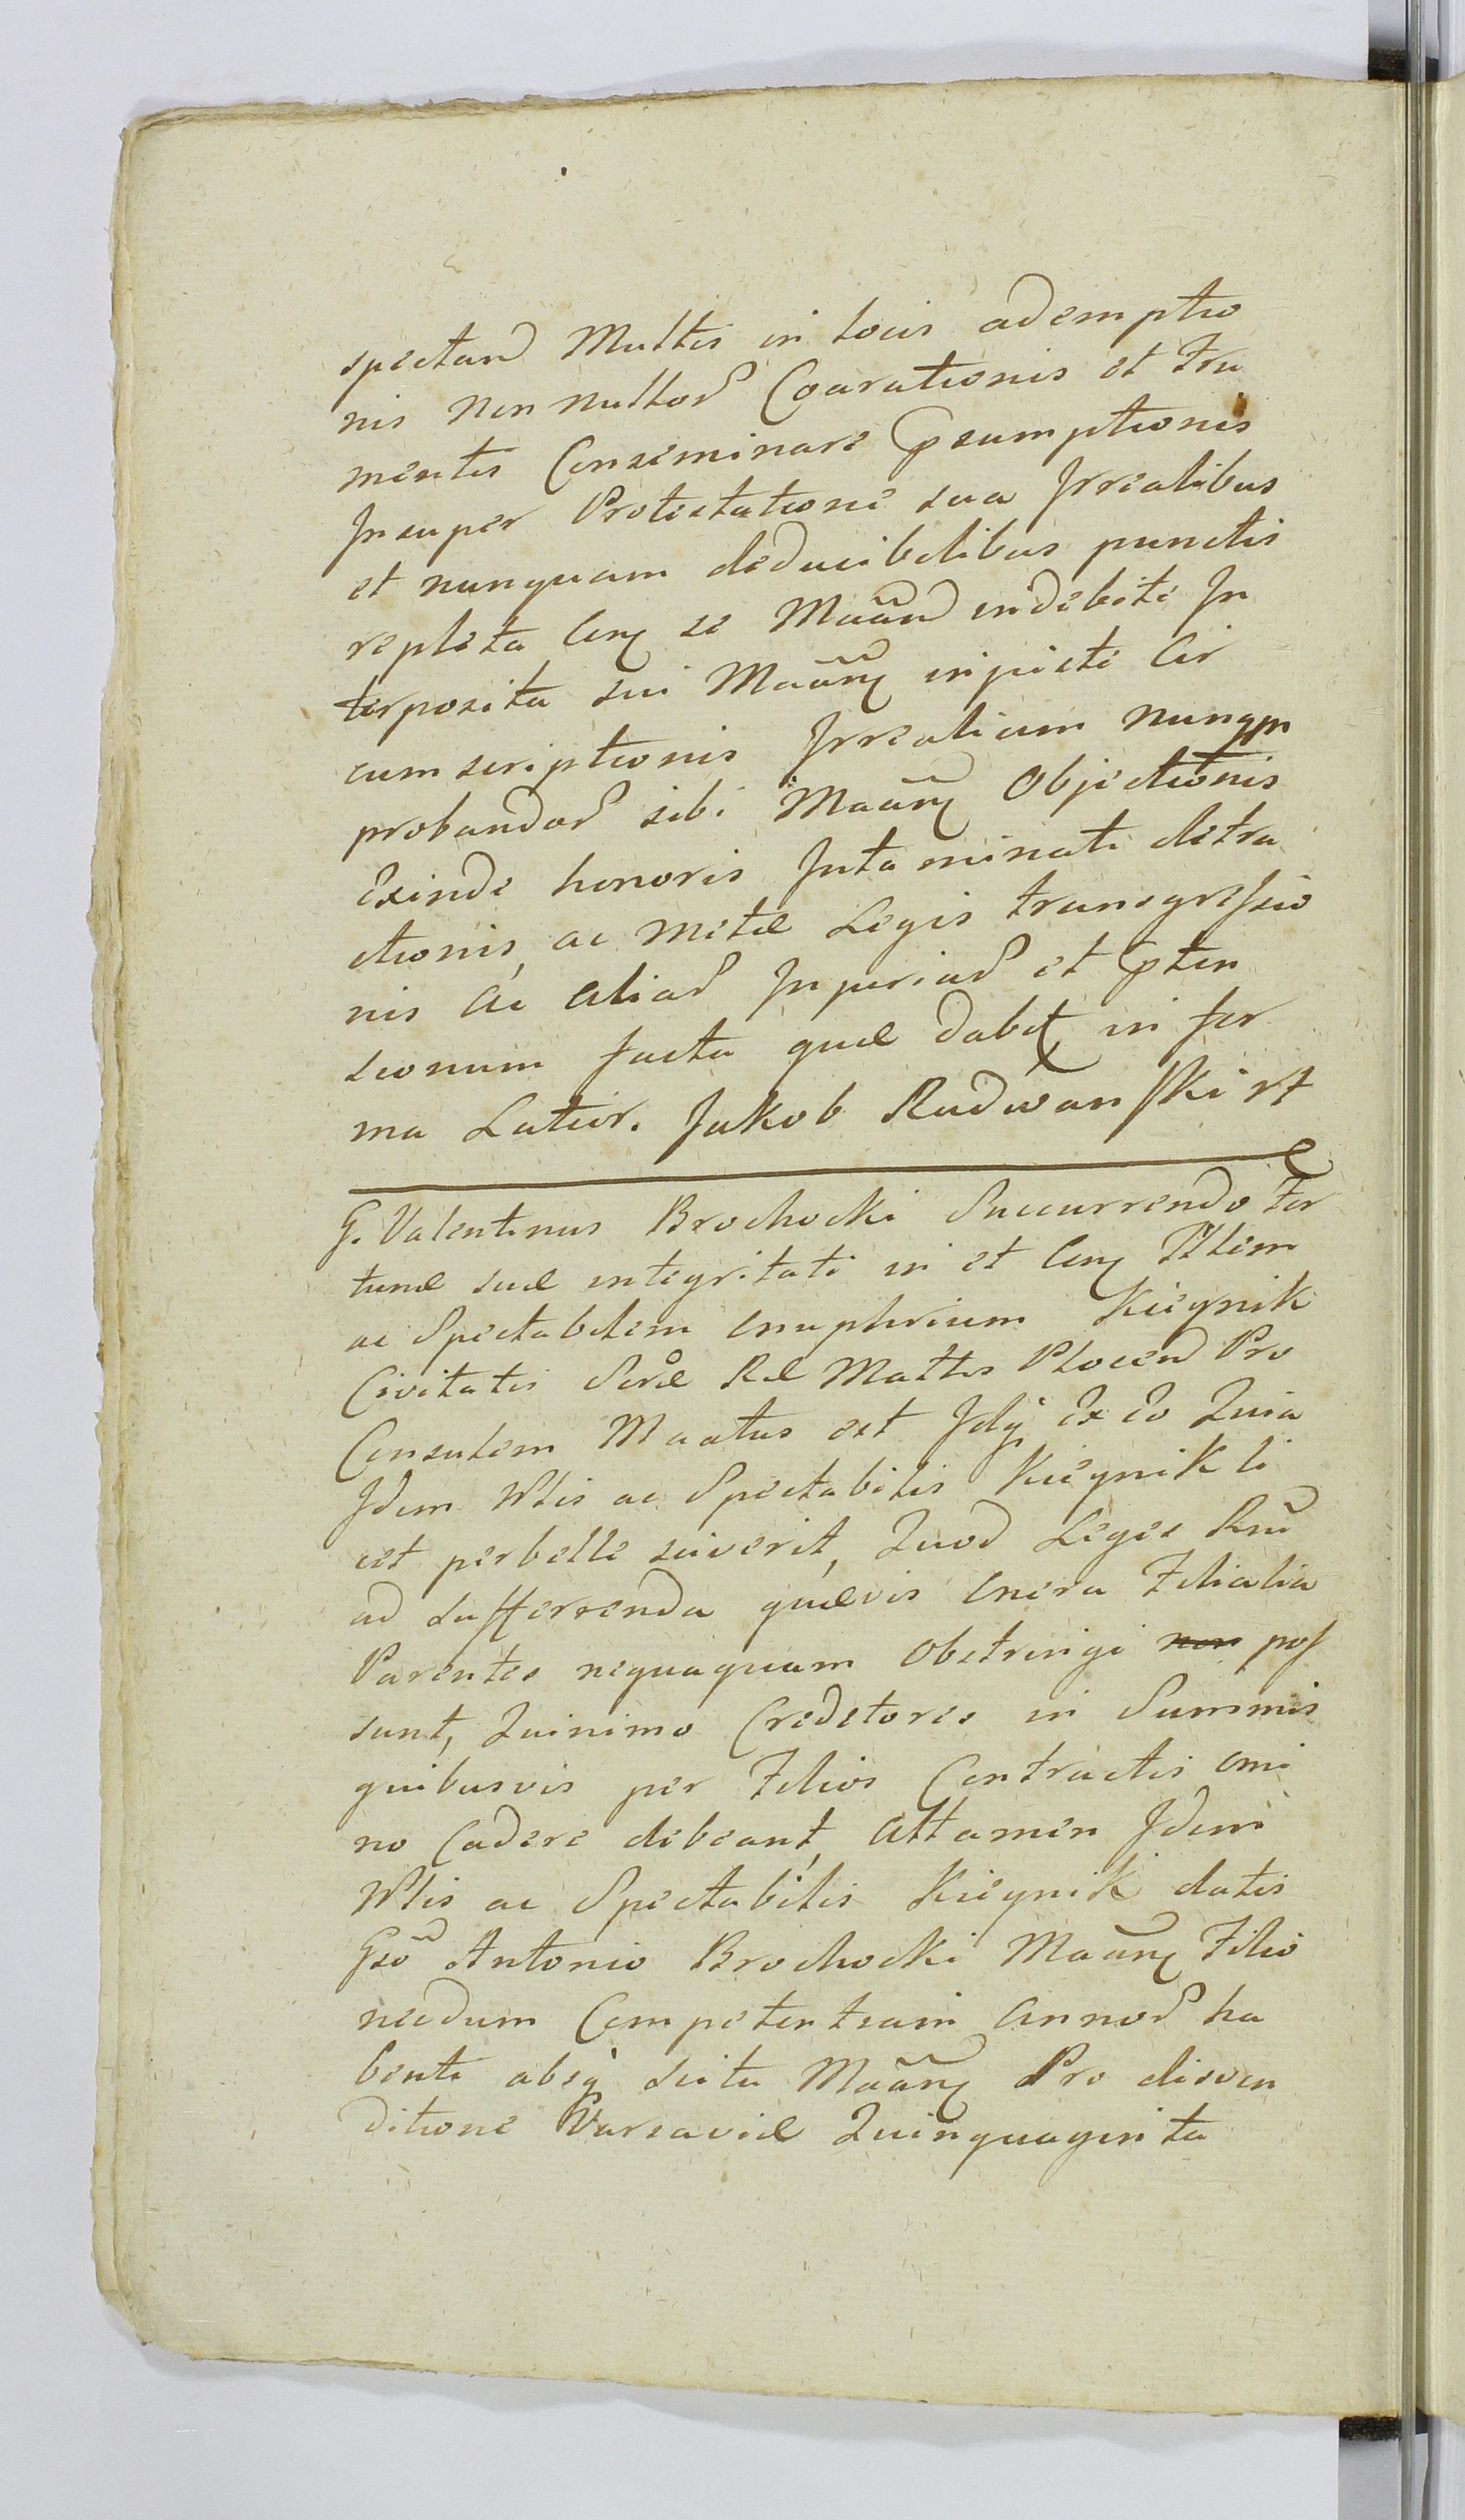 spectand Multis in locis ademptio
nis non nullor Coarationis et Fru
mentis Conseminare Psumptionis
Insuper Protestatione sua Irrealibus
et nunquam deducibilibus punctis
repleta Cong se Maand indebite In
terposita sui Maang injuste Cir
cumscriptionis Irrealium nunqm
probandor sibi Maang Objectionis
Exinde honoris Intaminati detra
ctionis, ac metæ Legis transgressio
nis ac aliar Injuriar et Pten
sionum facta quæ dabit in for
ma Latior. Jakob Radwanski rt
G. Valentinus Brochocki Succurrendo For
tunæ suæ integritati in et Cong Nblem
ac Spectabilem Onuphrium Kieynik
Civitatis Seræ Ræ Mattis Plocen Pro
Consulem Maatus est Idq Ex Eo Quia
Idem Nblis ac Spectabilis Kieynik li
cet perbelle sciverit, Quod Leges Rni
ad sufferrenda quævis Onera Filialia
Parentes nequaquam Obstringi non pos
sunt, Quinimo Creditores in Summis
quibusvis per Filios Contractis omi
no Cadere debeant, attamen Idem
Nblis ac Spectabilis Kieynik datis
Gso Antonio Brochocki Maang Filio
necdum Competentiam annor ha
benti absq scitu Maang Pro disven
ditione Varsaviæ Quinquaginta